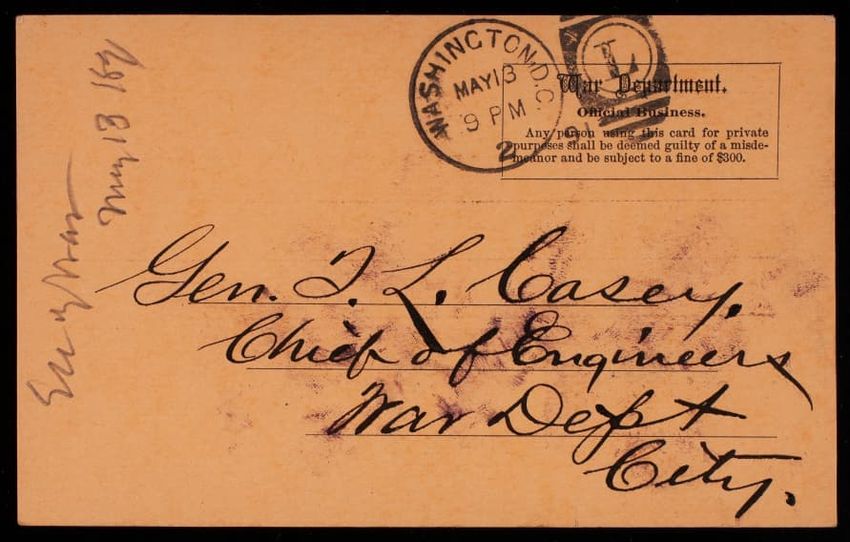 WASHINGTON, D.C.
MAY 13
9 PM
2
L
War Department.
Official Business.
Any person using this card for private
purposes shall be deemed guilty of a misde-
meanor and be subject to a fine of $300.
Gen. T. L. Casey.
Chief of Engineers
War Dept
City.
May 13